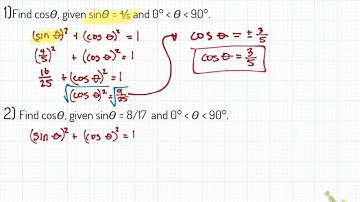 1) Find cosθ, given sinθ = 4/5 and 0° < θ < 90°.
(sin θ)² + (cos θ)² = 1
(4/5)² + (cos θ)² = 1
16/25 + (cos θ)² = 1
√(cos θ)² = √9/25
cos θ = ± 3/5
cos θ = 3/5
2) Find cosθ, given sinθ = 8/17 and 0° < θ < 90°.
(sin θ)² + (cos θ)² = 1